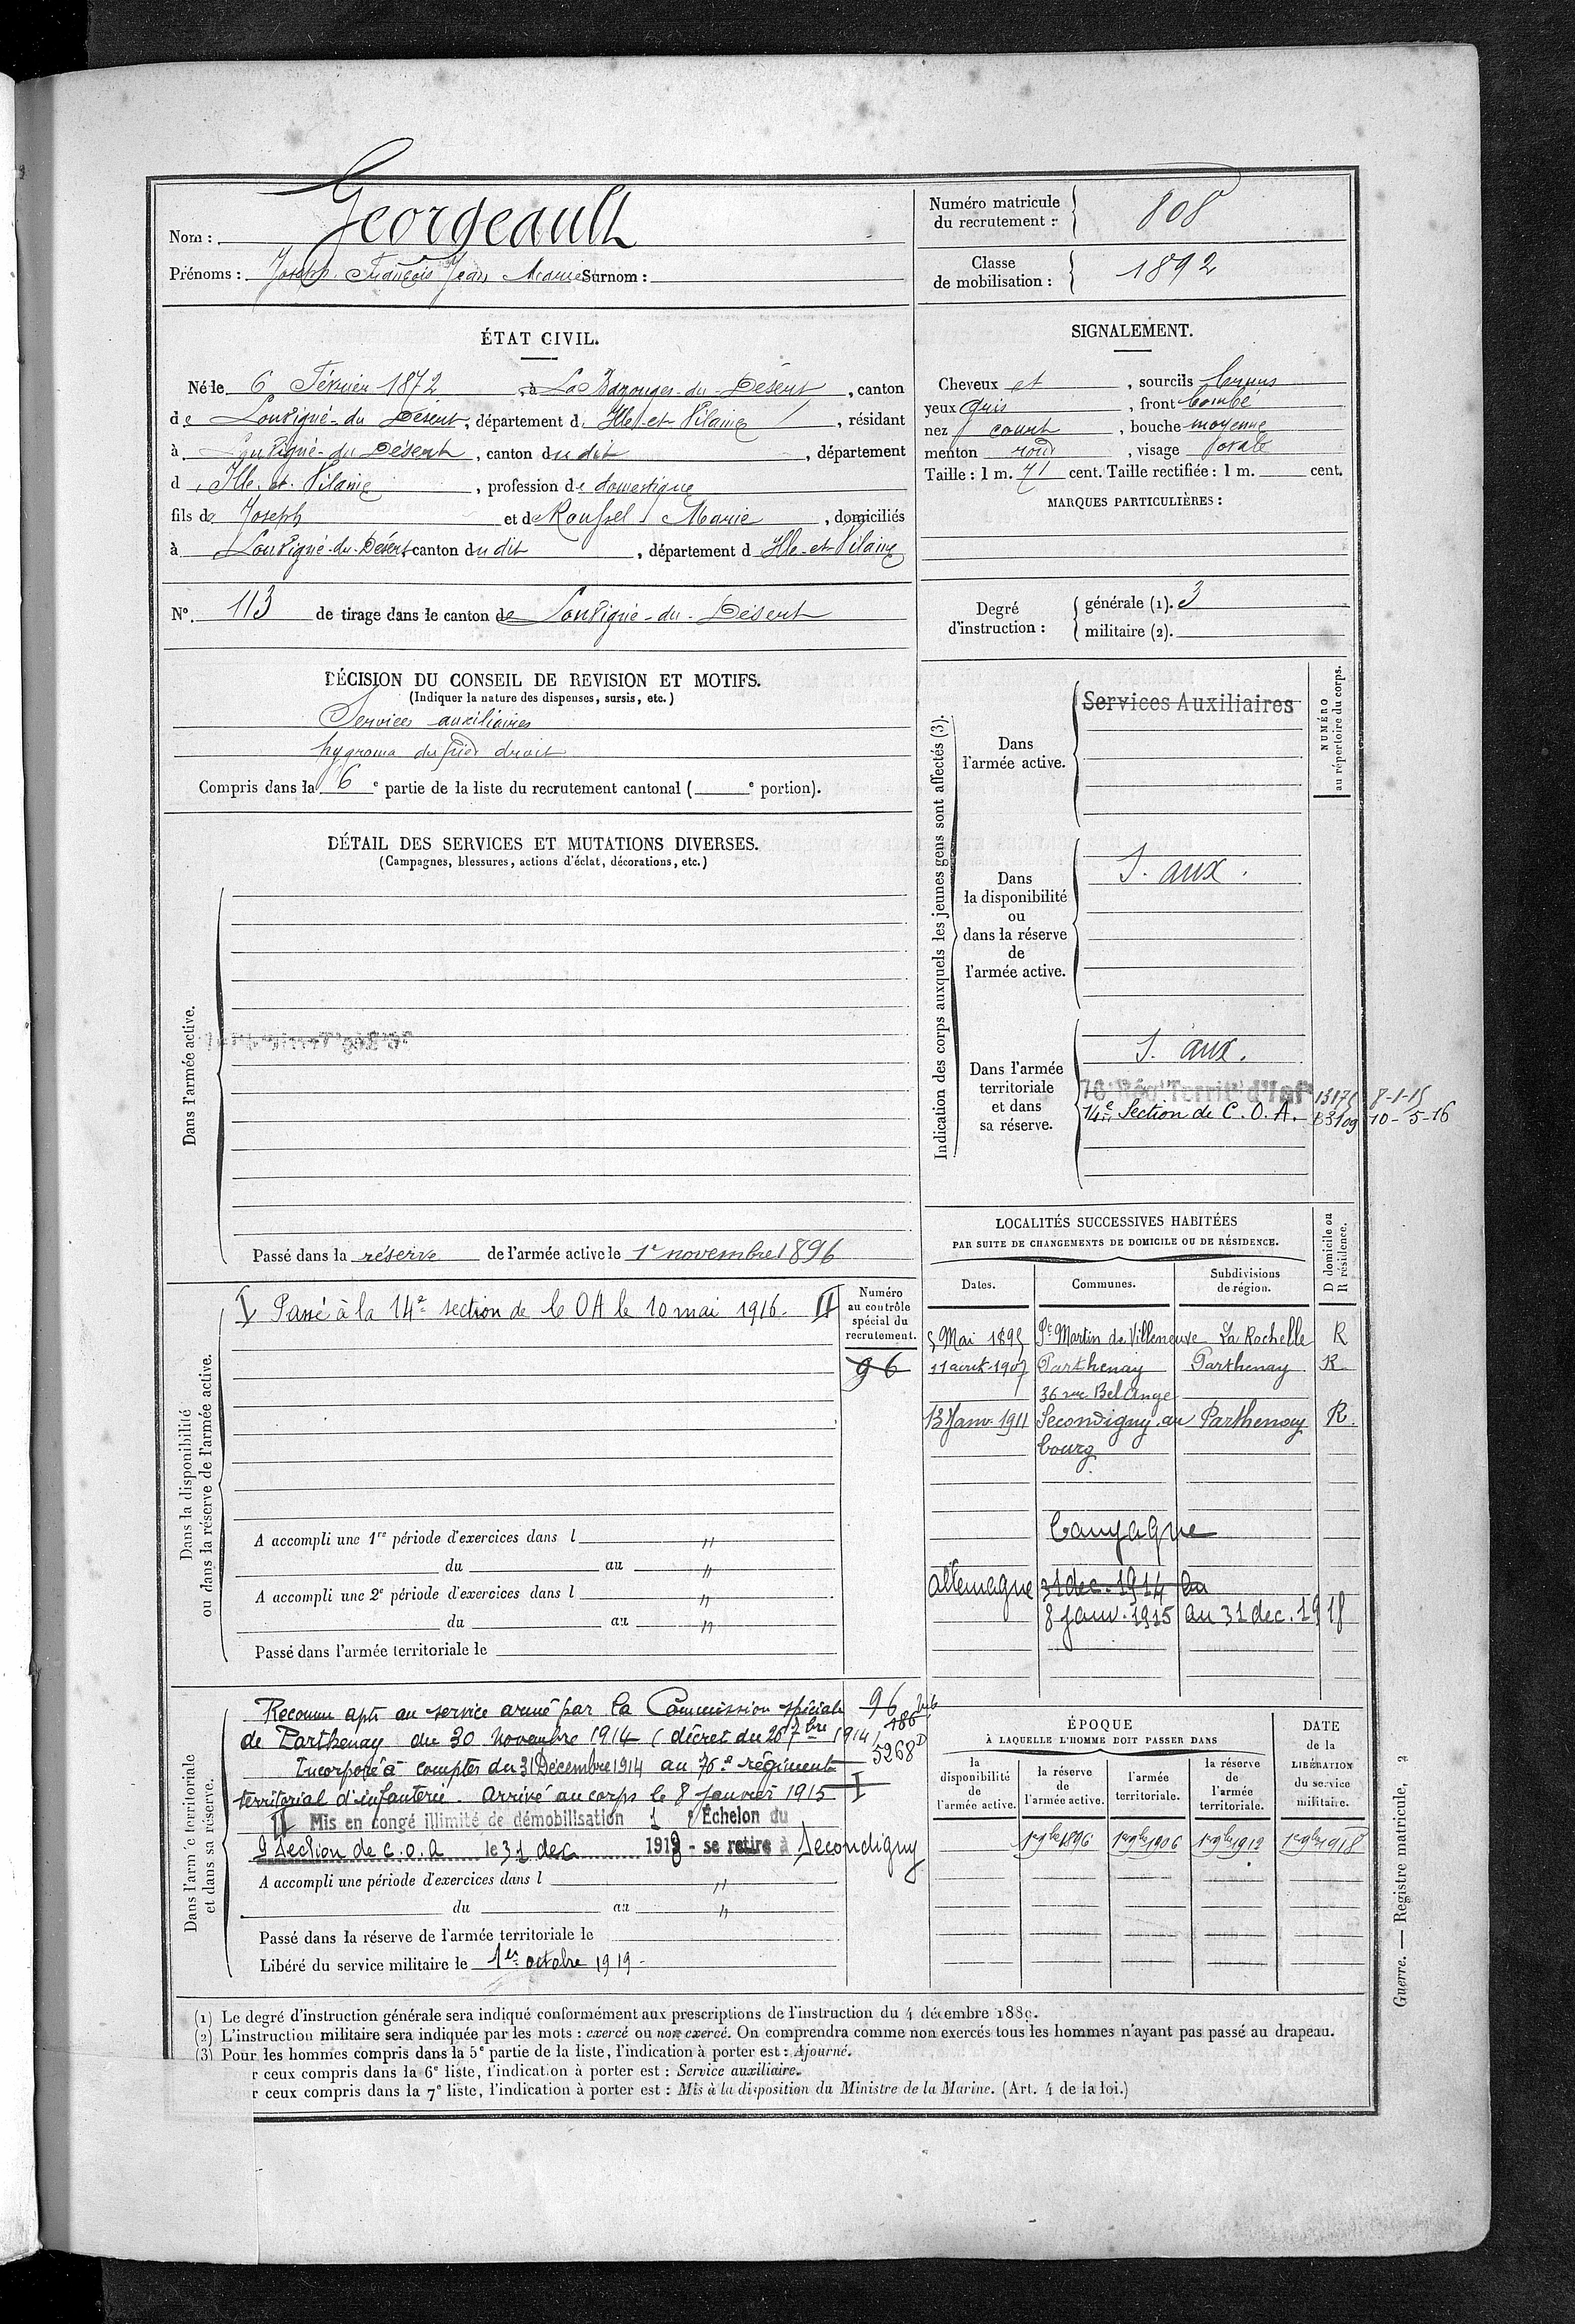 Nom : Georgeault
Prénoms : Joseph François Jean Marie Surnom :
Numéro matricule du recrutement : 808
Classe de mobilisation : 1892
ÉTAT CIVIL.
Né le 6 Février 1872, à La Bazouges-du-Désert, canton
de Louvigné-du-Désert, département d'Ille-et-Vilaine, résidant
à Louvigné-du-Désert, canton du dit, département
d'Ille-et-Vilaine, profession de domestique
fils de Joseph et de Roussel Marie, domiciliés
à Louvigné-du-Désert canton du dit, département d Ille-et-Vilaine
N° 113 de tirage dans le canton de Louvigné-du-Désert
SIGNALEMENT.
Cheveux et, sourcils bruns
yeux gris, front bombé
nez court, bouche moyenne
menton rond, visage ovale
Taille : 1 m. 71 cent. Taille rectifiée : 1 m. cent.
MARQUES PARTICULIÈRES :
Degré d'instruction :
générale (1). 3
militaire (2).
DÉCISION DU CONSEIL DE REVISION ET MOTIFS.
(Indiquer la nature des dispenses, sursis, etc.)
Services auxiliaires
hygroma du pied droit
Compris dans la 6e partie de la liste du recrutement cantonal ( e portion).
DÉTAIL DES SERVICES ET MUTATIONS DIVERSES.
(Campagnes, blessures, actions d'éclat, décorations, etc.)
Dans l'armée active.
Passé dans la réserve de l'armée active le 1er novembre 1896
Indication des corps auxquels les jeunes gens sont affectés (3).
NUMÉRO au répertoire du corps.
Dans l'armée active.
Services Auxiliaires
Dans la disponibilité ou dans la réserve de l'armée active.
S. aux.
Dans l'armée territoriale et dans sa réserve.
S. aux.
76e Rég Territ d'Inf 13175 8-1-15
14e Section de C. O. A. 10-5-16
Dans la disponibilité ou dans la réserve de l'armée active.
I Passé à la 14e section de C O A le 10 mai 1916. II
Numéro au contrôle spécial du recrutement.
96
A accompli une 1re période d'exercices dans l "
du au "
A accompli une 2e période d'exercices dans l "
du au "
Passé dans l'armée territoriale le
LOCALITÉS SUCCESSIVES HABITÉES
PAR SUITE DE CHANGEMENTS DE DOMICILE OU DE RÉSIDENCE.
D domicile ou R résidence.
Dates. Communes. Subdivisions de région.
5 Mai 1895 St Martin de Villeneuve La Rochelle R
11 avril 1907 Parthenay Parthenay R
36 rue Bel Ange
13 Janv. 1911 Secondigny au Parthenay R.
bourg
Campagne
Allemagne 31 dec. 1914 au
8 janv. 1915 au 31 dec. 1918
Dans l'armée territoriale et dans sa réserve.
Reconnu apte au service armé par la Commission spéciale 96
de Parthenay du 30 Novembre 1914 (décret du 26 7bre 1914) 186
Incorporé à compter du 31 Décembre 1914 au 76e régiment 5268
territorial d'infanterie. Arrivé au corps le 8 Janvier 1915 I
II Mis en congé illimité de démobilisation 1 Échelon du
9 Section de C.O.A le 31 dec 1918 - se retire à Secondigny
A accompli une période d'exercices dans l "
du au "
Passé dans la réserve de l'armée territoriale le
Libéré du service militaire le 1er octobre 1919 -
ÉPOQUE
À LAQUELLE L'HOMME DOIT PASSER DANS
DATE de la LIBÉRATION du service militaire.
la disponibilité de l'armée active.
la réserve de l'armée active.
l'armée territoriale.
la réserve de l'armée territoriale.
1er 9bre 1896 1er 9bre 1906 1er 9bre 1912 1er 9bre 1918
(1) Le degré d'instruction générale sera indiqué conformément aux prescriptions de l'instruction du 4 décembre 1889.
(2) L'instruction militaire sera indiquée par les mots : exercé ou non exercé. On comprendra comme non exercés tous les hommes n'ayant pas passé au drapeau.
(3) Pour les hommes compris dans la 5e partie de la liste, l'indication à porter est : Ajourné.
r ceux compris dans la 6e liste, l'indication à porter est : Service auxiliaire.
r ceux compris dans la 7e liste, l'indication à porter est : Mis à la disposition du Ministre de la Marine. (Art. 4 de la loi.)
Guerre. — Registre matricule, 2